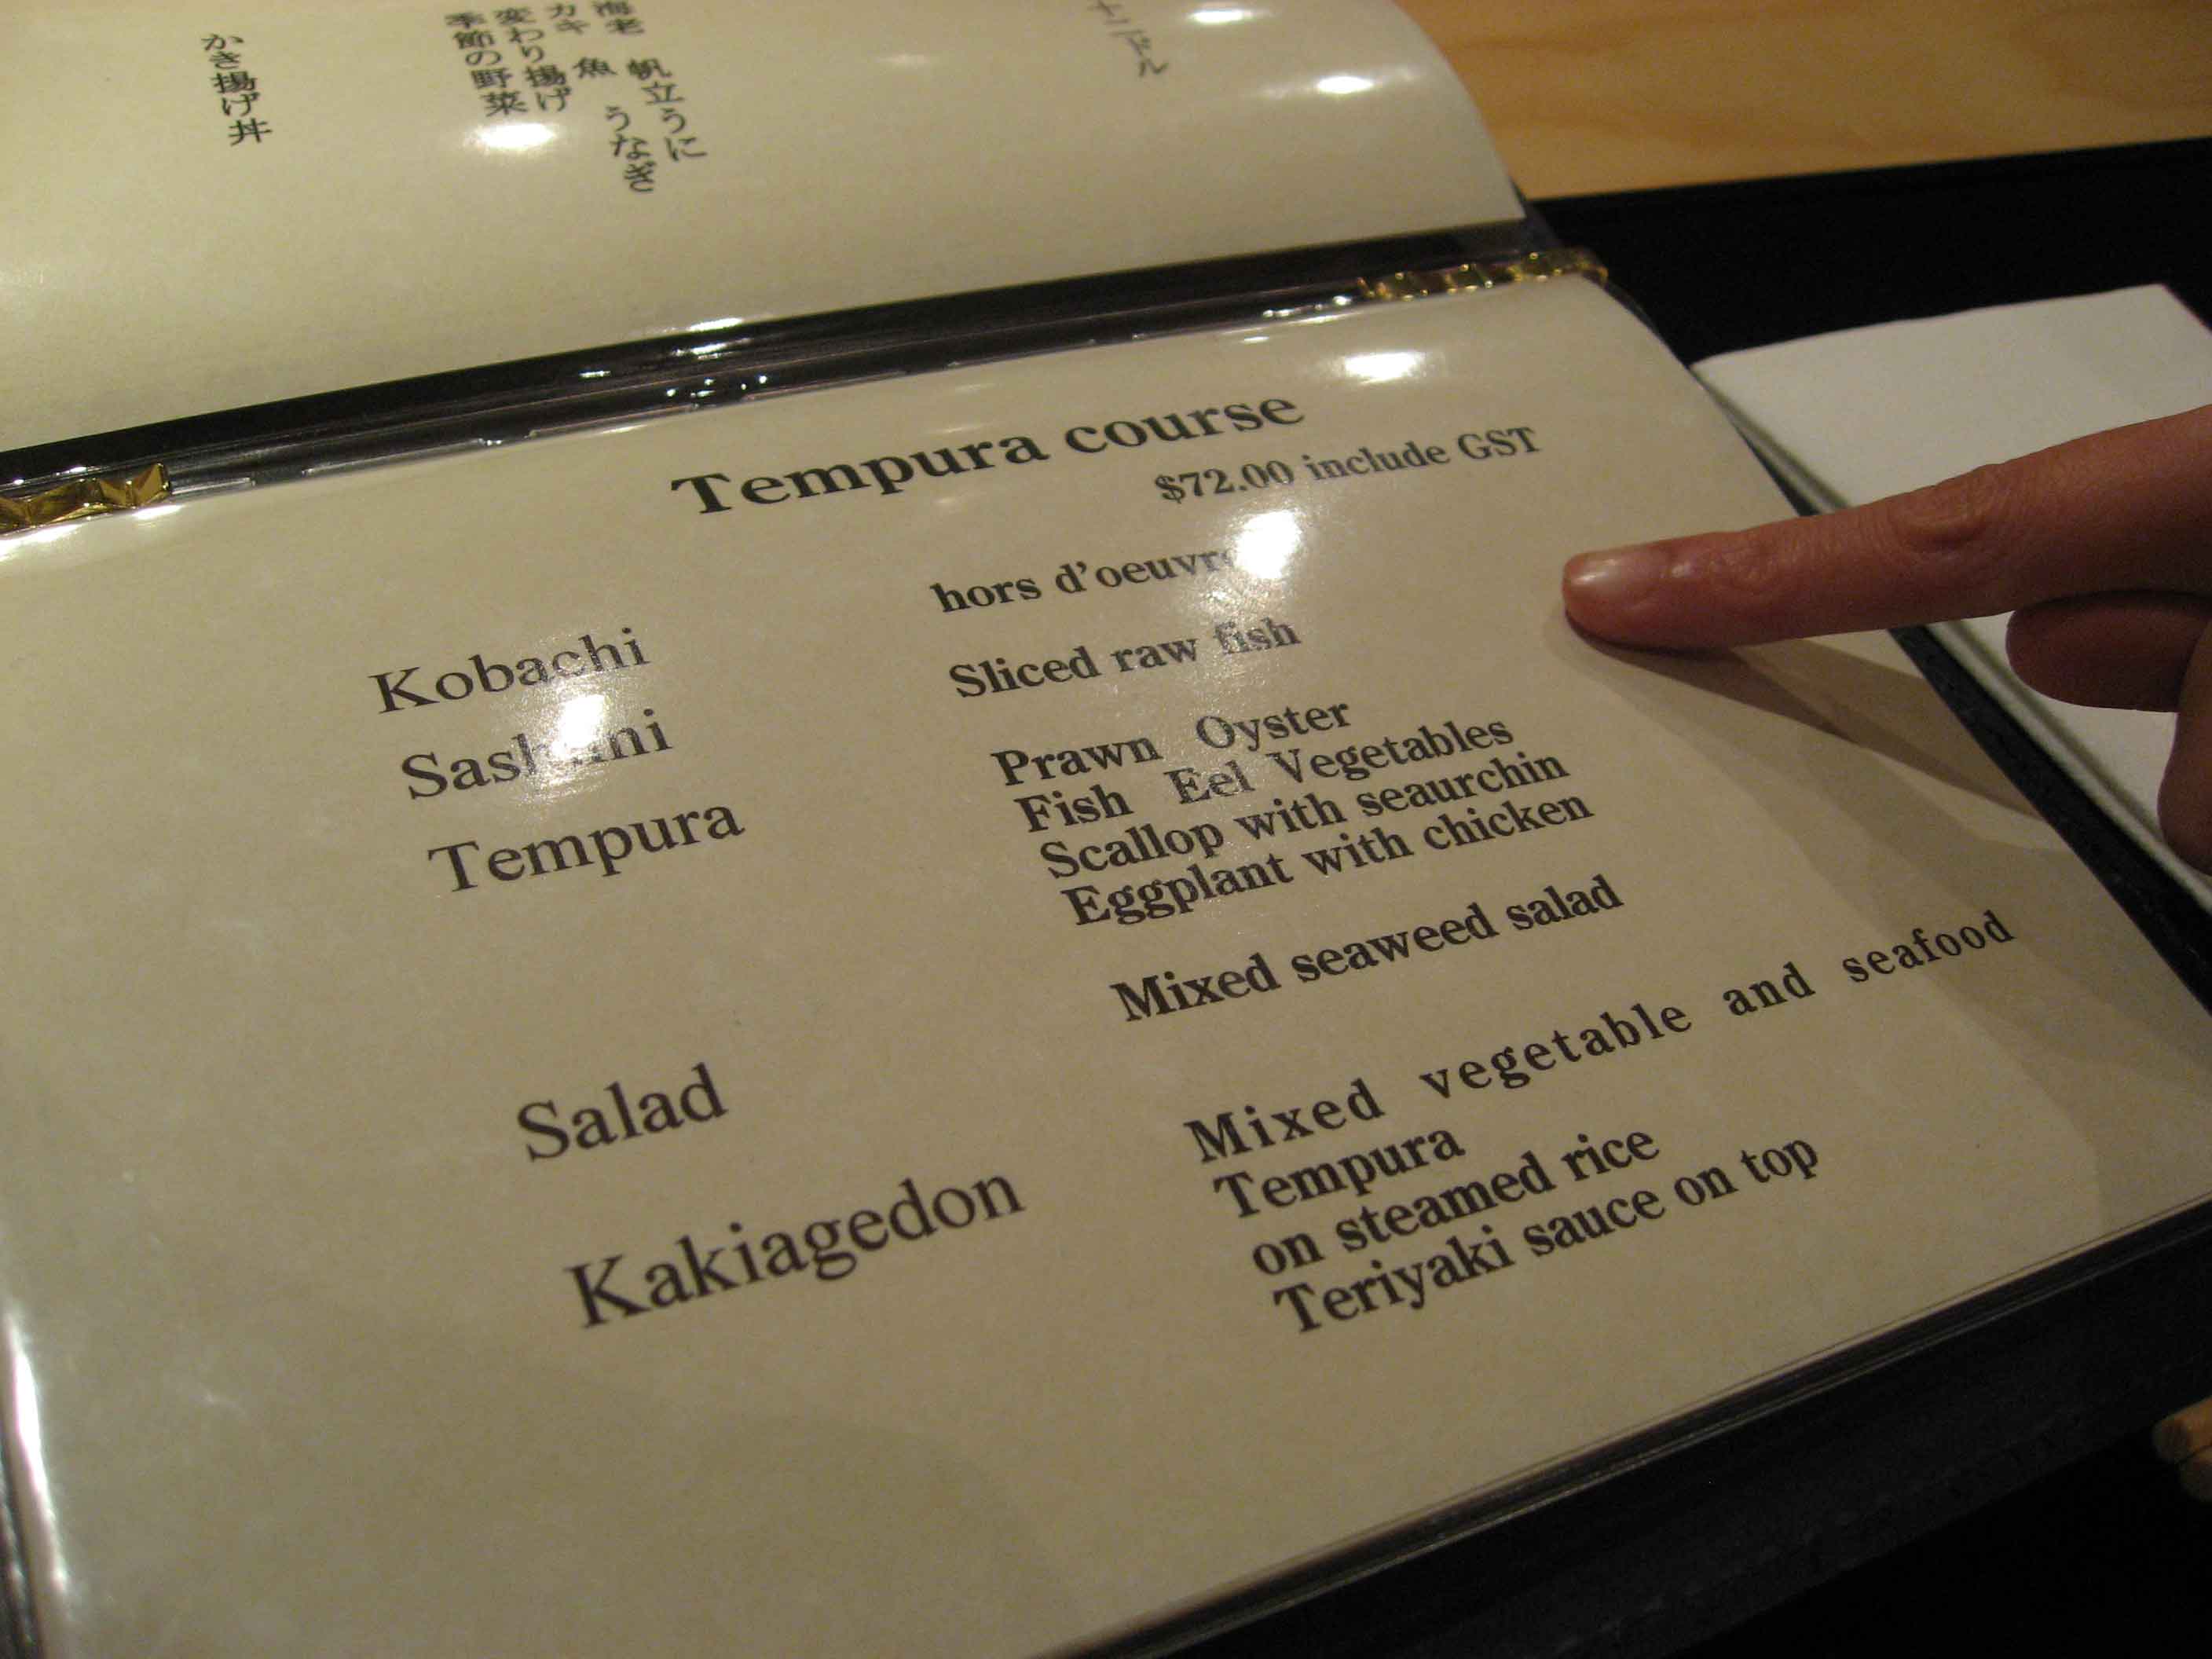 海老 帆立うに
カキ 魚 うなぎ
変わり揚げ
季節の野菜
かき揚げ丼
Tempura course
$72.00 include GST
Kobachi
hors d'oeuvre
Sashimi
Sliced raw fish
Tempura
Prawn Oyster
Fish Eel Vegetables
Scallop with seaurchin
Eggplant with chicken
Salad
Mixed seaweed salad
Kakiagedon
Mixed vegetable and seafood
Tempura
on steamed rice
Teriyaki sauce on top